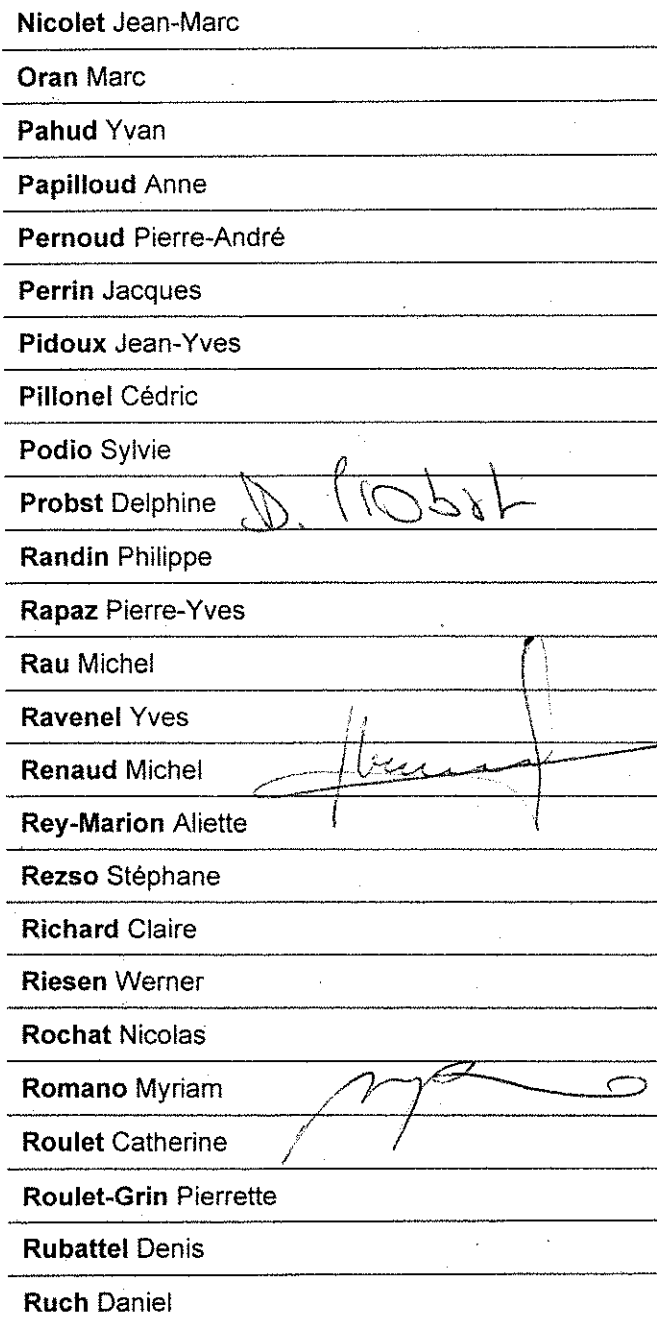 Nicolet Jean-Marc
Oran Marc
Pahud Yvan
Papilloud Anne
Pernoud Pierre-André
Perrin Jacques
Pidoux Jean-Yves
Pillonel Cédric
Podio Sylvie
Probst Delphine D. Probst
Randin Philippe
Rapaz Pierre-Yves
Rau Michel
Ravenel Yves
Renaud Michel
Rey-Marion Aliette
Rezso Stéphane
Richard Claire
Riesen Werner
Rochat Nicolas
Romano Myriam
Roulet Catherine
Roulet-Grin Pierrette
Rubattel Denis
Ruch Daniel